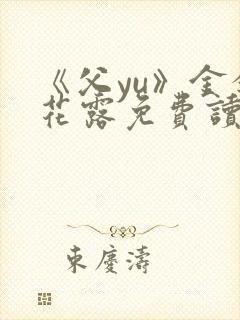 《父yu》金銀
花露免費讀
東慶濤